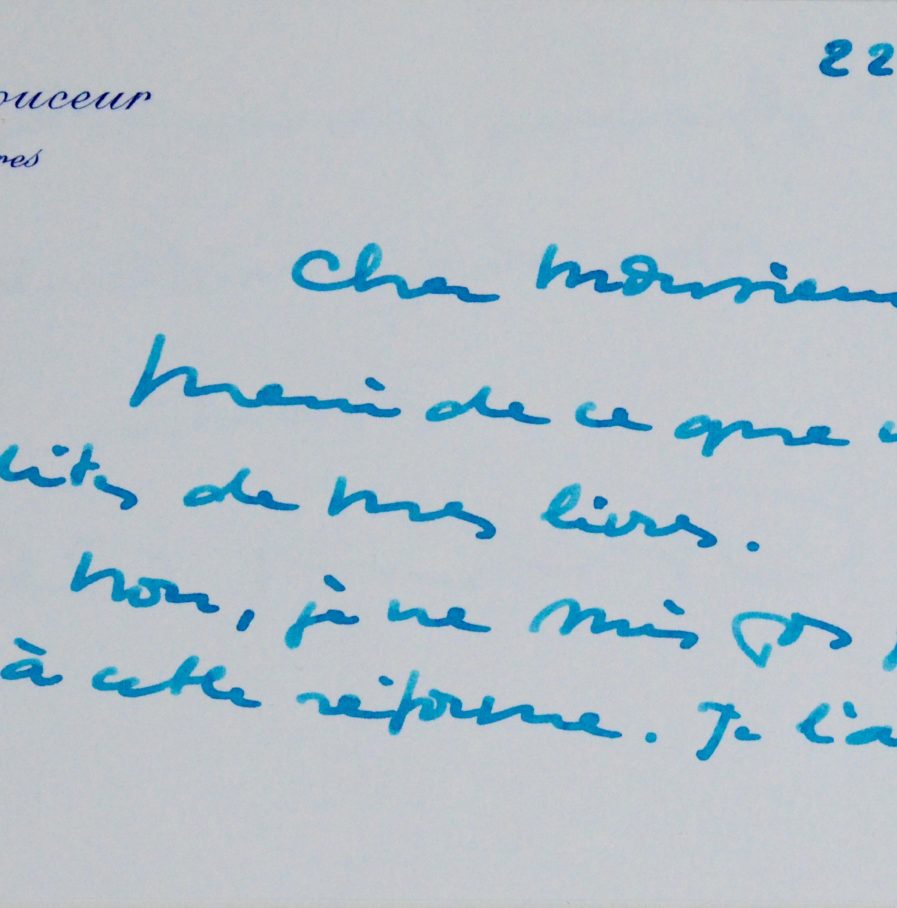 22
ouceur
res
Cher Monsieur
Merci de ce que
dites de mes livres.
Non, je ne suis pas
à cette réforme. Je l'a